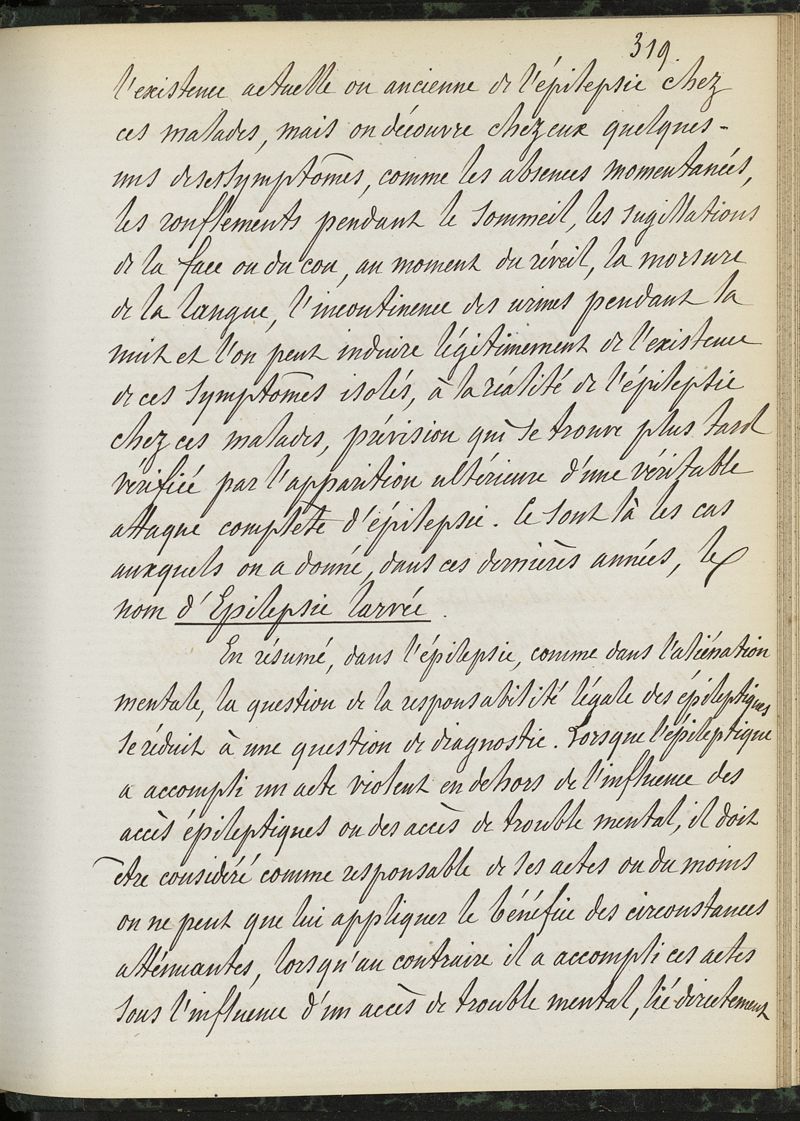 319.
l'existence actuelle ou ancienne de l'épilepsie chez
ces malades, mais on découvre chez eux quelques-
uns de ses symptômes, comme les absences momentanées,
les ronflements pendant le sommeil, les sugillations
de la face ou du cou, au moment du réveil, la morsure
de la langue, l'incontinence des urines pendant la
nuit et l'on peut induire légitimement de l'existence
de ces symptômes isolés, à la réalité de l'épilepsie
chez ces malades, prévision qui se trouve plus tard
vérifiée par l'apparition ultérieure d'une véritable
attaque complète d'épilepsie. Ce sont là les cas
auxquels on a donné, dans ces dernières années, le
nom d'Epilepsie larvée.
En résumé, dans l'épilepsie, comme dans l'aliénation
mentale, la question de la responsabilité légale des épileptiques
se réduit à une question de diagnostic. Lorsque l'épileptique
a accompli un acte violent en dehors de l'influence des
accès épileptiques ou des accès de trouble mental, il doit
être considéré comme responsable de ses actes ou du moins
on ne peut que lui appliquer le bénéfice des circonstances
atténuantes, lorsqu'au contraire il a accompli ces actes
sous l'influence d'un accès de trouble mental, lié directement